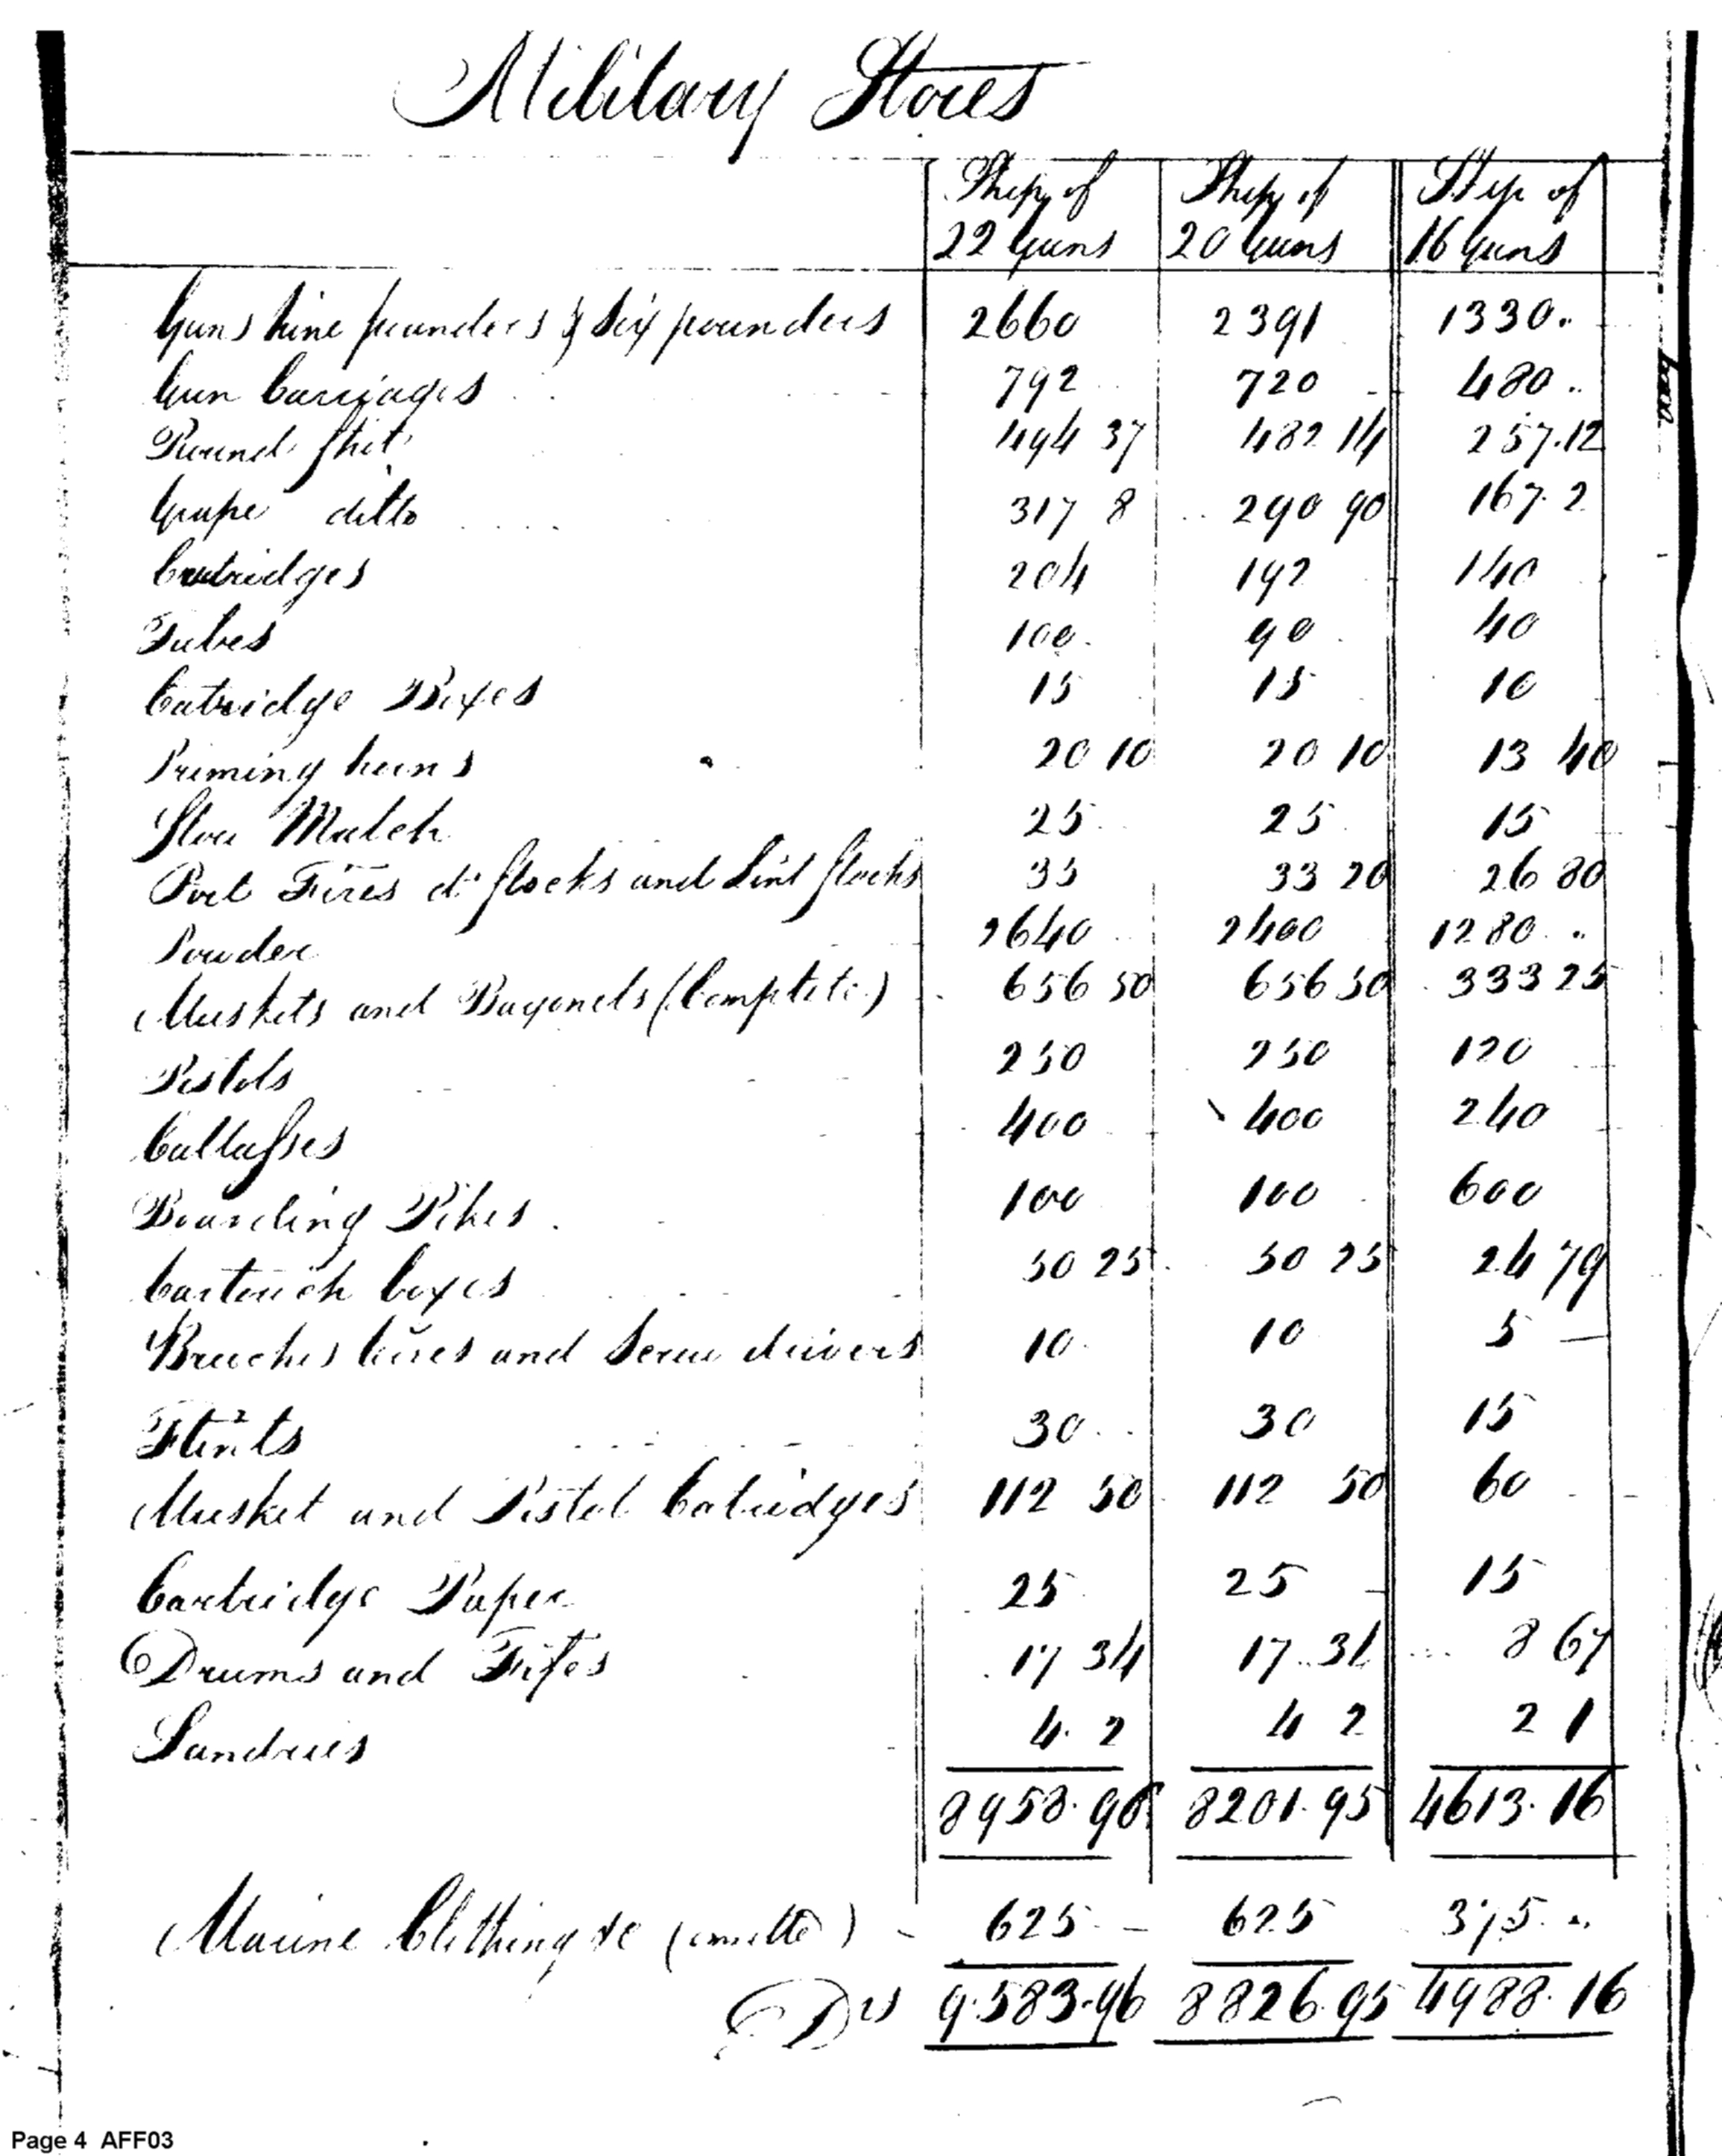 Military Stores
Ship of Ship of Ship of
22 Guns 20 Guns 16 Guns
Guns Nine pounders & Six pounders 2660 2391 1330
Gun Carriages 792 720 480
Round Shot 494 37 482 14 257.12
Grape ditto 317 8 290 90 167.2
Cartridges 204 192 140
Tubes 100 90 40
Catridge Boxes 15 15 10
Priming horns 20 10 20 10 13 40
Slow Match 25 25 15
Port Fires do. Stocks and Lint Stocks 33 33 20 26 80
Powder 2640 2400 1280
Muskets and Bayonets (Complete) 656 50 656 50 333 25
Pistols 250 250 120
Cutlasses 400 400 240
Boarding Pikes 100 100 600
Cartouch boxes 50 25 50 25 24 79
Bruches Wires and Screw drivers 10 10 5
Flints 30 30 15
Musket and Pistol Catridges 112 50 112 50 60
Cartridge Paper 25 25 15
Drums and Fifes 17 34 17 34 8 67
Sundries 4. 2 4 2 2 1
8958.96 8201.95 4613.16
Marine Clothing &c (omitted) 625 625 375
Drs 9.583.96 8826.95 4988.16
Page 4 AFF03